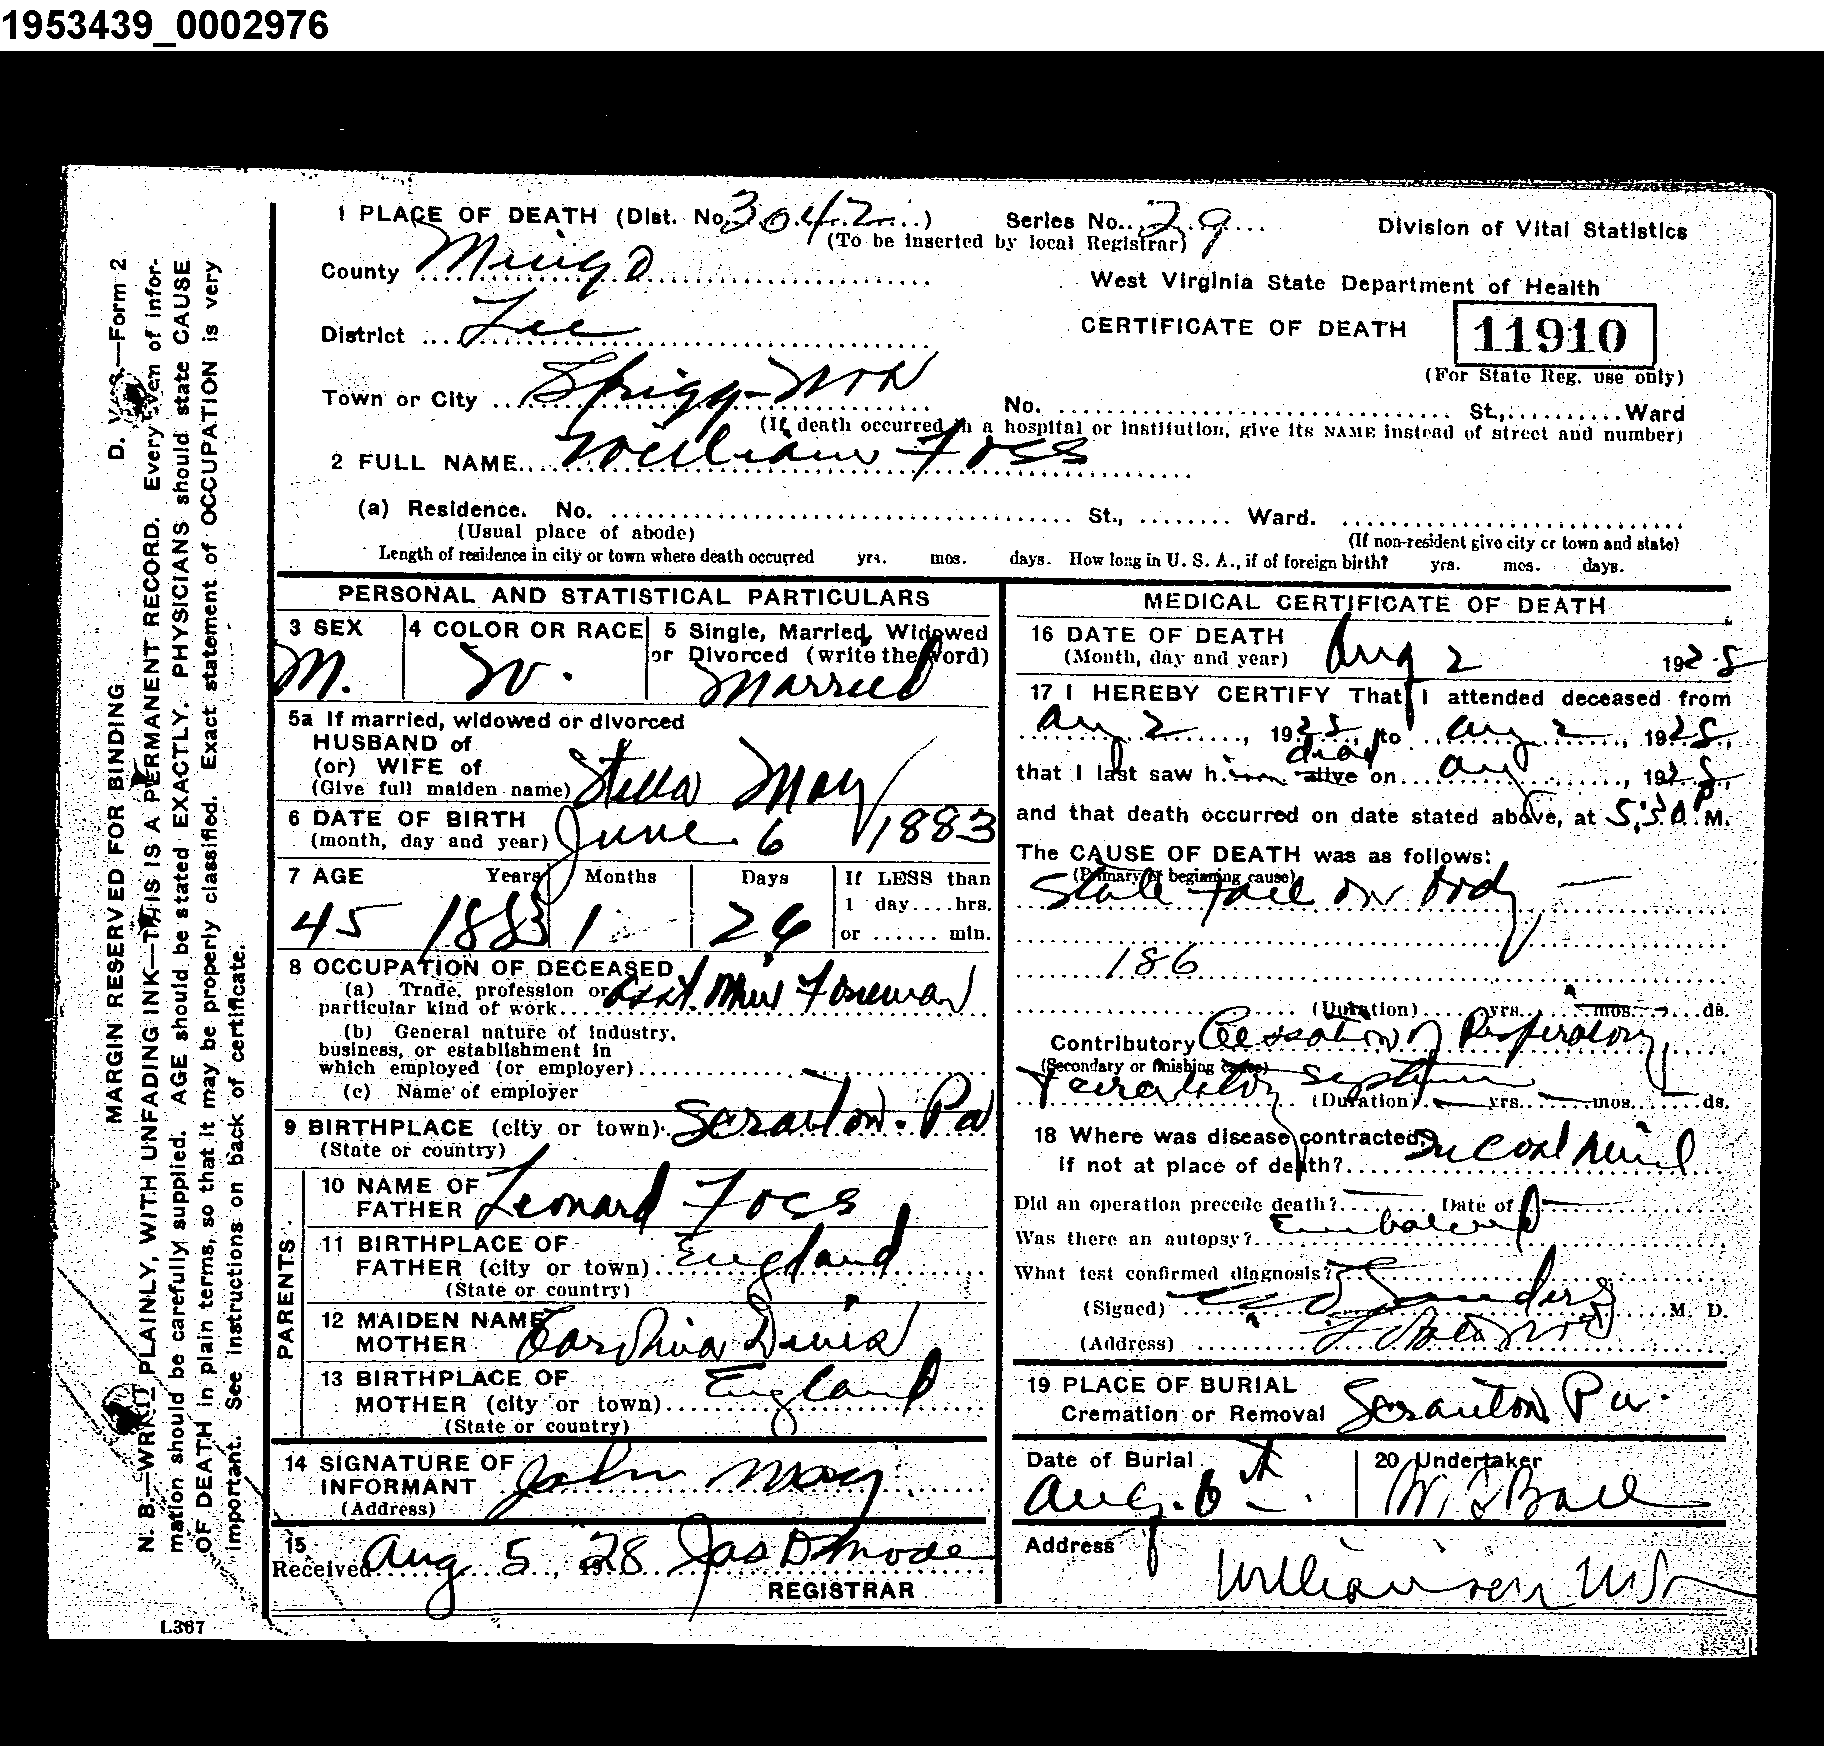 1953439_0002976
1 PLACE OF DEATH (Dist. No. 3042) Series No. 29 Division of Vital Statistics
(To be inserted by local Registrar)
County Mingo West Virginia State Department of Health
District Lee CERTIFICATE OF DEATH 11910
(For State Reg. use only)
Town or City Sprigg No. St., Ward
(If death occurred in a hospital or institution, give its NAME instead of street and number)
2 FULL NAME William Foss
(a) Residence. No. St., Ward.
(Usual place of abode) (If non-resident give city or town and state)
Length of residence in city or town where death occurred yrs. mos. days. How long in U. S. A., if of foreign birth? yrs. mos. days.
PERSONAL AND STATISTICAL PARTICULARS
3 SEX 4 COLOR OR RACE 5 Single, Married, Widowed
or Divorced (write the word)
M. W. Married
5a If married, widowed or divorced
HUSBAND of
(or) WIFE of
(Give full maiden name) Stella May
6 DATE OF BIRTH
(month, day and year) June 6 1883
7 AGE Years Months Days If LESS than
1 day....hrs.
45 1883 1 26 or ...... min.
8 OCCUPATION OF DECEASED
(a) Trade, profession or
particular kind of work Asst. Mine Foreman
(b) General nature of industry,
business, or establishment in
which employed (or employer)
(c) Name of employer
9 BIRTHPLACE (city or town) Scranton. Pa
(State or country)
PARENTS.
10 NAME OF
FATHER Leonard Foss
11 BIRTHPLACE OF
FATHER (city or town) England
(State or country)
12 MAIDEN NAME
MOTHER Carolina Davis
13 BIRTHPLACE OF
MOTHER (city or town) England
(State or country)
14 SIGNATURE OF
INFORMANT John May
(Address)
15
Received Aug 5, 1928 Jas D
REGISTRAR
MEDICAL CERTIFICATE OF DEATH
16 DATE OF DEATH
(Month, day and year) Aug 2 1928
17 I HEREBY CERTIFY That I attended deceased from
Aug 2, 1928, to Aug 2, 1928,
dead
that I last saw him alive on Aug, 1928,
and that death occurred on date stated above, at 5:30 P. M.
The CAUSE OF DEATH was as follows:
(Primary or beginning cause)
Slate Fall on body
186
(Duration) yrs. mos. ds.
Contributory Cessation of Respiratory
(Secondary or finishing cause)
(Duration) yrs. mos. ds.
18 Where was disease contracted,
if not at place of death? In coal mine
Did an operation precede death? Date of
Was there an autopsy? Embalmed
What test confirmed diagnosis?
(Signed) Sanders M. D.
(Address)
19 PLACE OF BURIAL
Cremation or Removal Scranton Pa.
Date of Burial 20 Undertaker
Aug. 6th W. Ball
Address
Williamson W.
MARGIN RESERVED FOR BINDING D. V. S.—Form 2
N. B.—WRITE PLAINLY, WITH UNFADING INK—THIS IS A PERMANENT RECORD. Every item of infor-
mation should be carefully supplied. AGE should be stated EXACTLY. PHYSICIANS should state CAUSE
OF DEATH in plain terms, so that it may be properly classified. Exact statement of OCCUPATION is very
important. See instructions on back of certificate.
L367